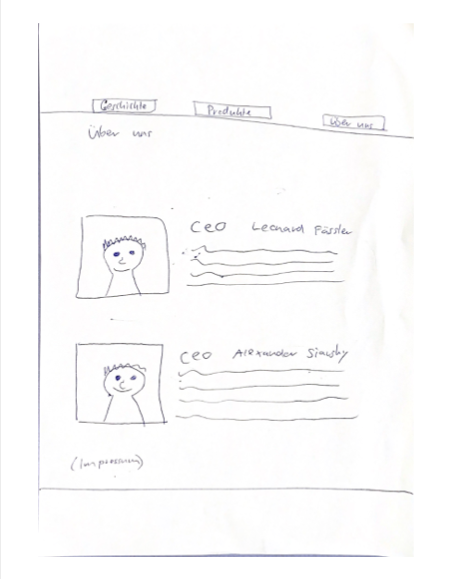 Geschichte Produkte Über uns
Über uns
CEO Leonard Fässler
CEO Alexander
(Impressum)